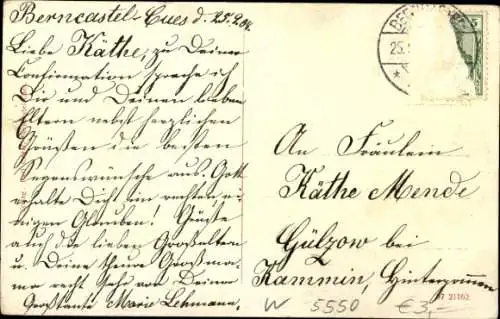 Berncastel-Cues d. 25.2.09.
Liebe Käthe, zu Deiner
Confirmation spreche ich
Dir und Deinen lieben
Eltern nebst herzlichen
Grüßen die besten
Segenswünsche aus. Gott
erhalte Dich im rechten ei-
nigen Glauben! Grüße
auch die lieben Großeltern
u. Deine theure Großma-
ma recht sehr von Deiner
Großtante Marie Lehmann.
An Fräulein
Käthe Mende
Gülzow bei
Kammin, Hinterpommern
W 5550 €3,-
97 21162